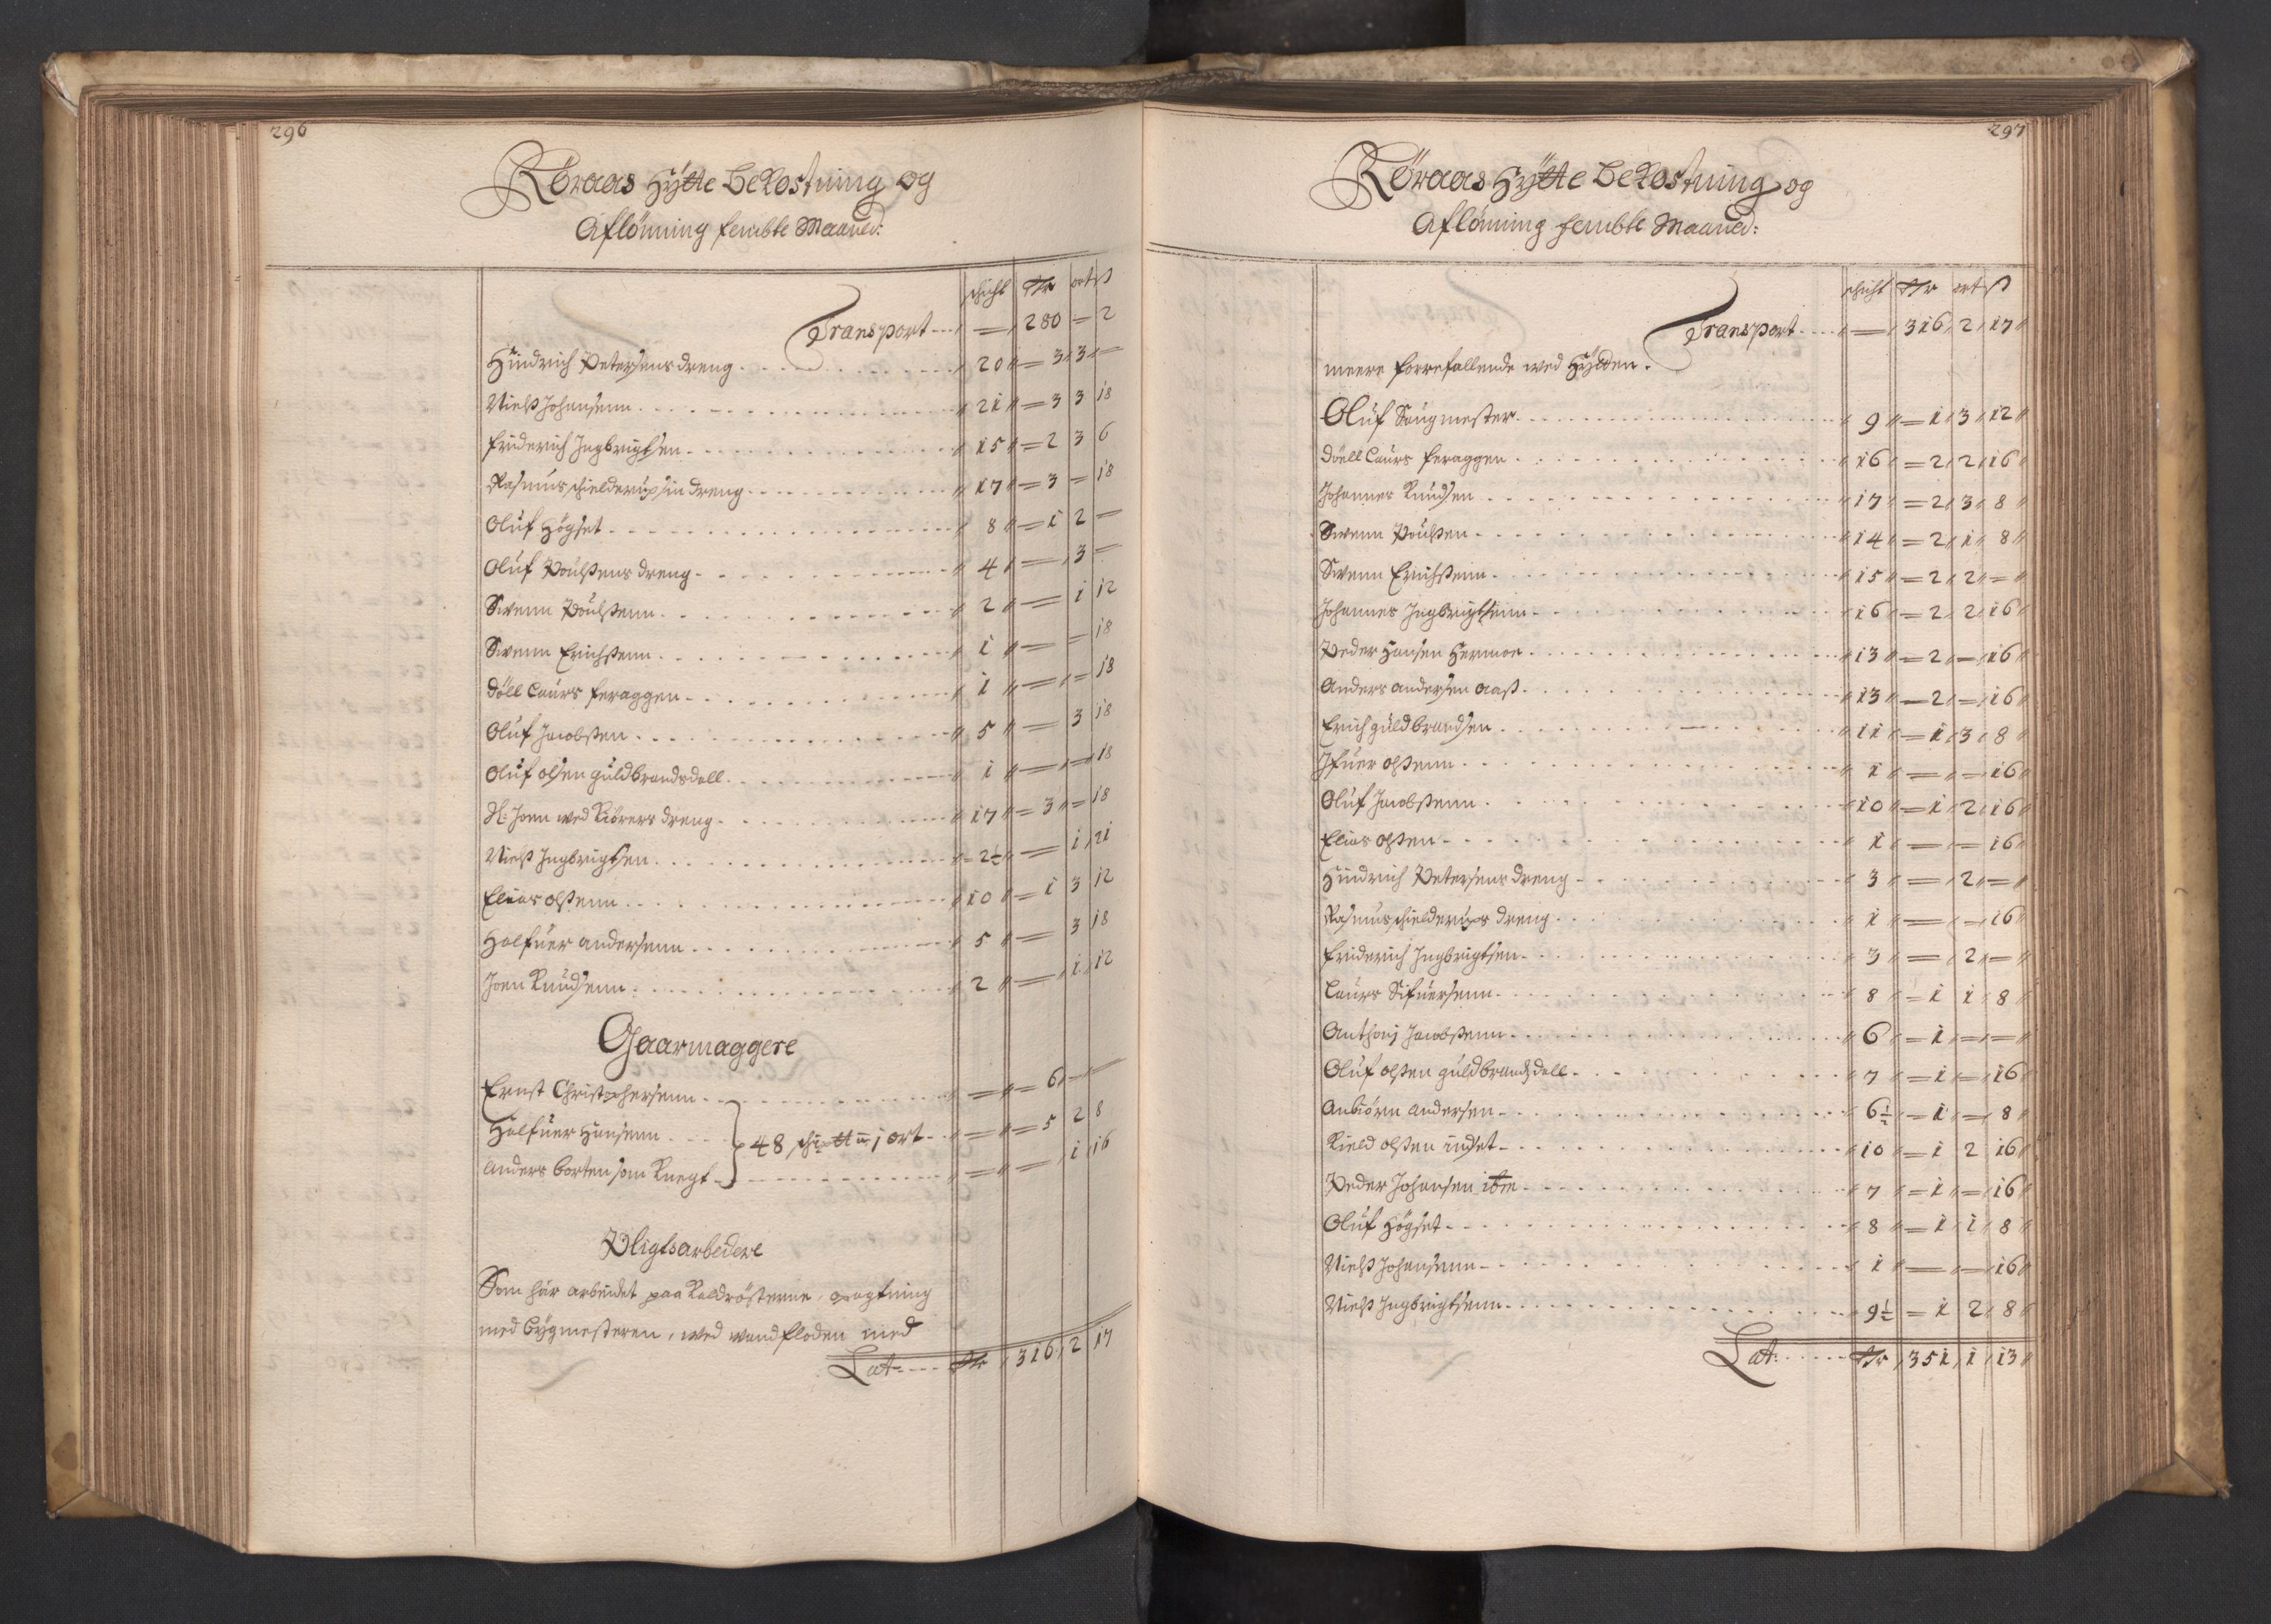 296
Röraas Hÿtte bekostning og
Aflönning fembte Maaned:
schicht Rdr ort ß
Transport — 280 — 2
Hindrich Petersens dreng 20 — 3 3 —
Nielß Johansenn 21 — 3 3 18
Friderich Ingbrigtsen 15 — 2 3 6
Rasmus schielderup sin dreng 17 — 3 — 18
Oluf Högset 8 — 1 2 —
Oluf Poulsens dreng 4 — 3 —
Swenn Poulsenn 2 — 1 12
Swenn Erichsenn 1 — — 18
Döll Laurs feraggen 1 — — 18
Oluf Jacobsen 5 — 3 18
Oluf olsen guldbrandsdall 1 — — 18
H: Joen wed Kiörers dreng 17 — 3 — 18
Nielß Ingbrigtsen 2½ — 1 21
Elias olsenn 10 — 1 3 12
Halfuer andersenn 5 — 3 18
Joen Knudsenn 2 — 1 12
Gaarmaggere
Ernst Christophersenn — — 6 — —
Halfuer Hansenn } 48 schitt ü 1 ort — — 5 2 8
Anders Borten som Knegt — — 1 16
Pligtsarbedere
Som här arbeidet paa Kaldrösterne, pragtning
med bÿgmesteren, wed wandfloden med
Lat: Rdr 316 2 17
297
Röraas Hÿtte bekostning og
Aflönning fembte Maaned:
schicht Rdr ort ß
Transport — 316 2 17
meere forrefallende wed Hÿtten.
Oluf Saugmester 9 — 1 3 12
Döell Laurs feraggen 16 — 2 2 16
Johannes Knudsen 17 — 2 3 8
Swenn Poulsen 14 — 2 1 8
Swenn Erichsenn 15 — 2 2 —
Johannes Ingbrigtsenn 16 — 2 2 16
Peder Hansen Hermoe 13 — 2 — 16
Anders andersen aas 13 — 2 — 16
Erich guldbrandsen 11 — 1 3 8
Ifuer olsenn 1 — — 16
Oluf Jacobsenn 10 — 1 2 16
Elias olsen 1 — — 16
Hindrich Petersens dreng 3 — 2 —
Rasmus schielderups dreng 1 — — 16
Friderich Ingbrigtsen 3 — 2 —
Laurs Sifuersenn 8 — 1 1 8
Anthonj Jacobsenn 6 — 1 — —
Oluf olsen guldbrandsdall 7 — 1 — 16
Anbiörn andersen 6½ — 1 — 8
Kield olsen indset 10 — 1 2 16
Peder Johansen itm 7 — 1 — 16
Oluf Högset 8 — 1 1 8
Nielß Johansenn 1 — — 16
Nielß Ingbrigtsenn 9½ — 1 2 8
Lat: Rdr 351 1 13